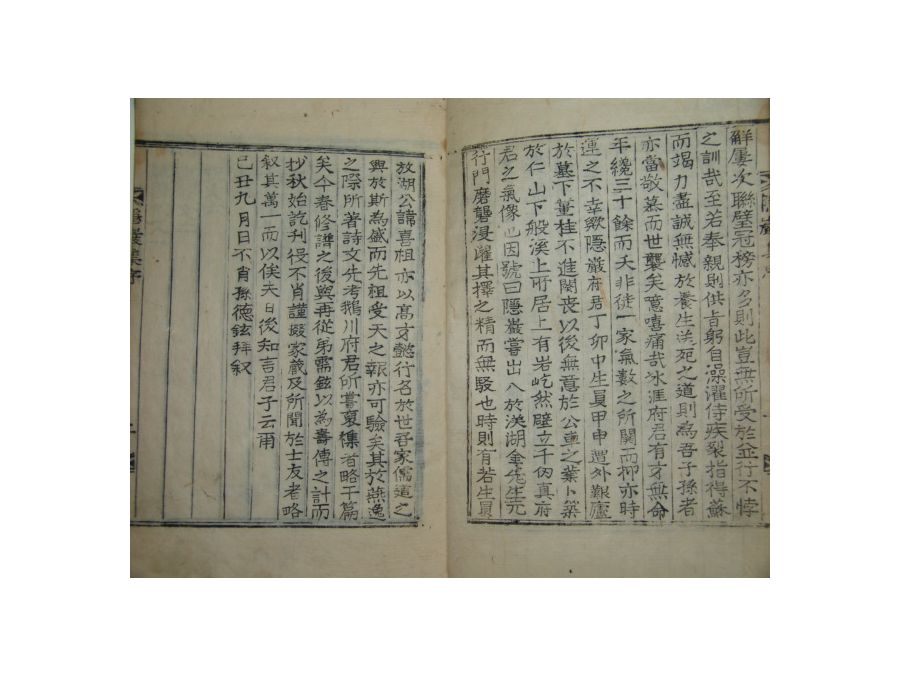 鮮屢次聯璧冠榜亦多則此豈無所受於並行不悖
之訓哉至若奉親則供旨躬自澡濯侍疾裂指得蘇
而竭力盡誠無憾於養生送死之道則為吾子孫者
亦當敬慕而世襲矣噫嘻痛哉氷涯府君有才無命
年纔三十餘而夭非徒一家氣數之所關而抑亦時
運之不幸歟隱巖府君丁卯中生員甲申遭外艱廬
於墓下薑桂不進闋喪以後無意於公車之業卜築
於仁山下般溪上所居上有岩屹然壁立千仞真府
君之氣像也因號曰隱巖嘗出入於渼湖金先生元
行門磨礱浸
其擇之精而無駁也時則有若生員
放湖公諱喜祖亦以高才懿行名於世吾家儒道之
興於斯為盛而先祖受天之報亦可驗矣其於燕逸
之際所著詩文先考鵝川府君所嘗裒集者略干篇
矣今春修譜之後與再從弟
鉉以為壽傳之計而
抄秋始訖刊役不肖謹掇家藏及所聞於士友者略
叙其萬一而以俟夫日後知言君子云爾
己丑九月日不肖孫德鉉拜叙